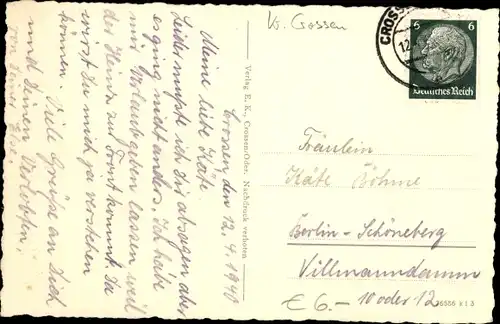 Crossen den 12.4.1940
Meine liebe Käte.
Leider mußte ich Dir absagen aber
es ging nicht anders, ich habe
mir Urlaub geben lassen weil
der Heinz zur Front kommt. Du
wirst Du mich ja verstehen
können. Viele Grüße an Dich
und Deinen Verlobten,
von Deiner Else.
Verlag E. K., Crossen/Oder. Nachdruck verboten
Kr. Crossen
CROSS
12.
6 6
Deutsches Reich
Fräulein
Käte Böhme
Berlin-Schöneberg
Villmanndamm
10 oder 12
€ 6.-